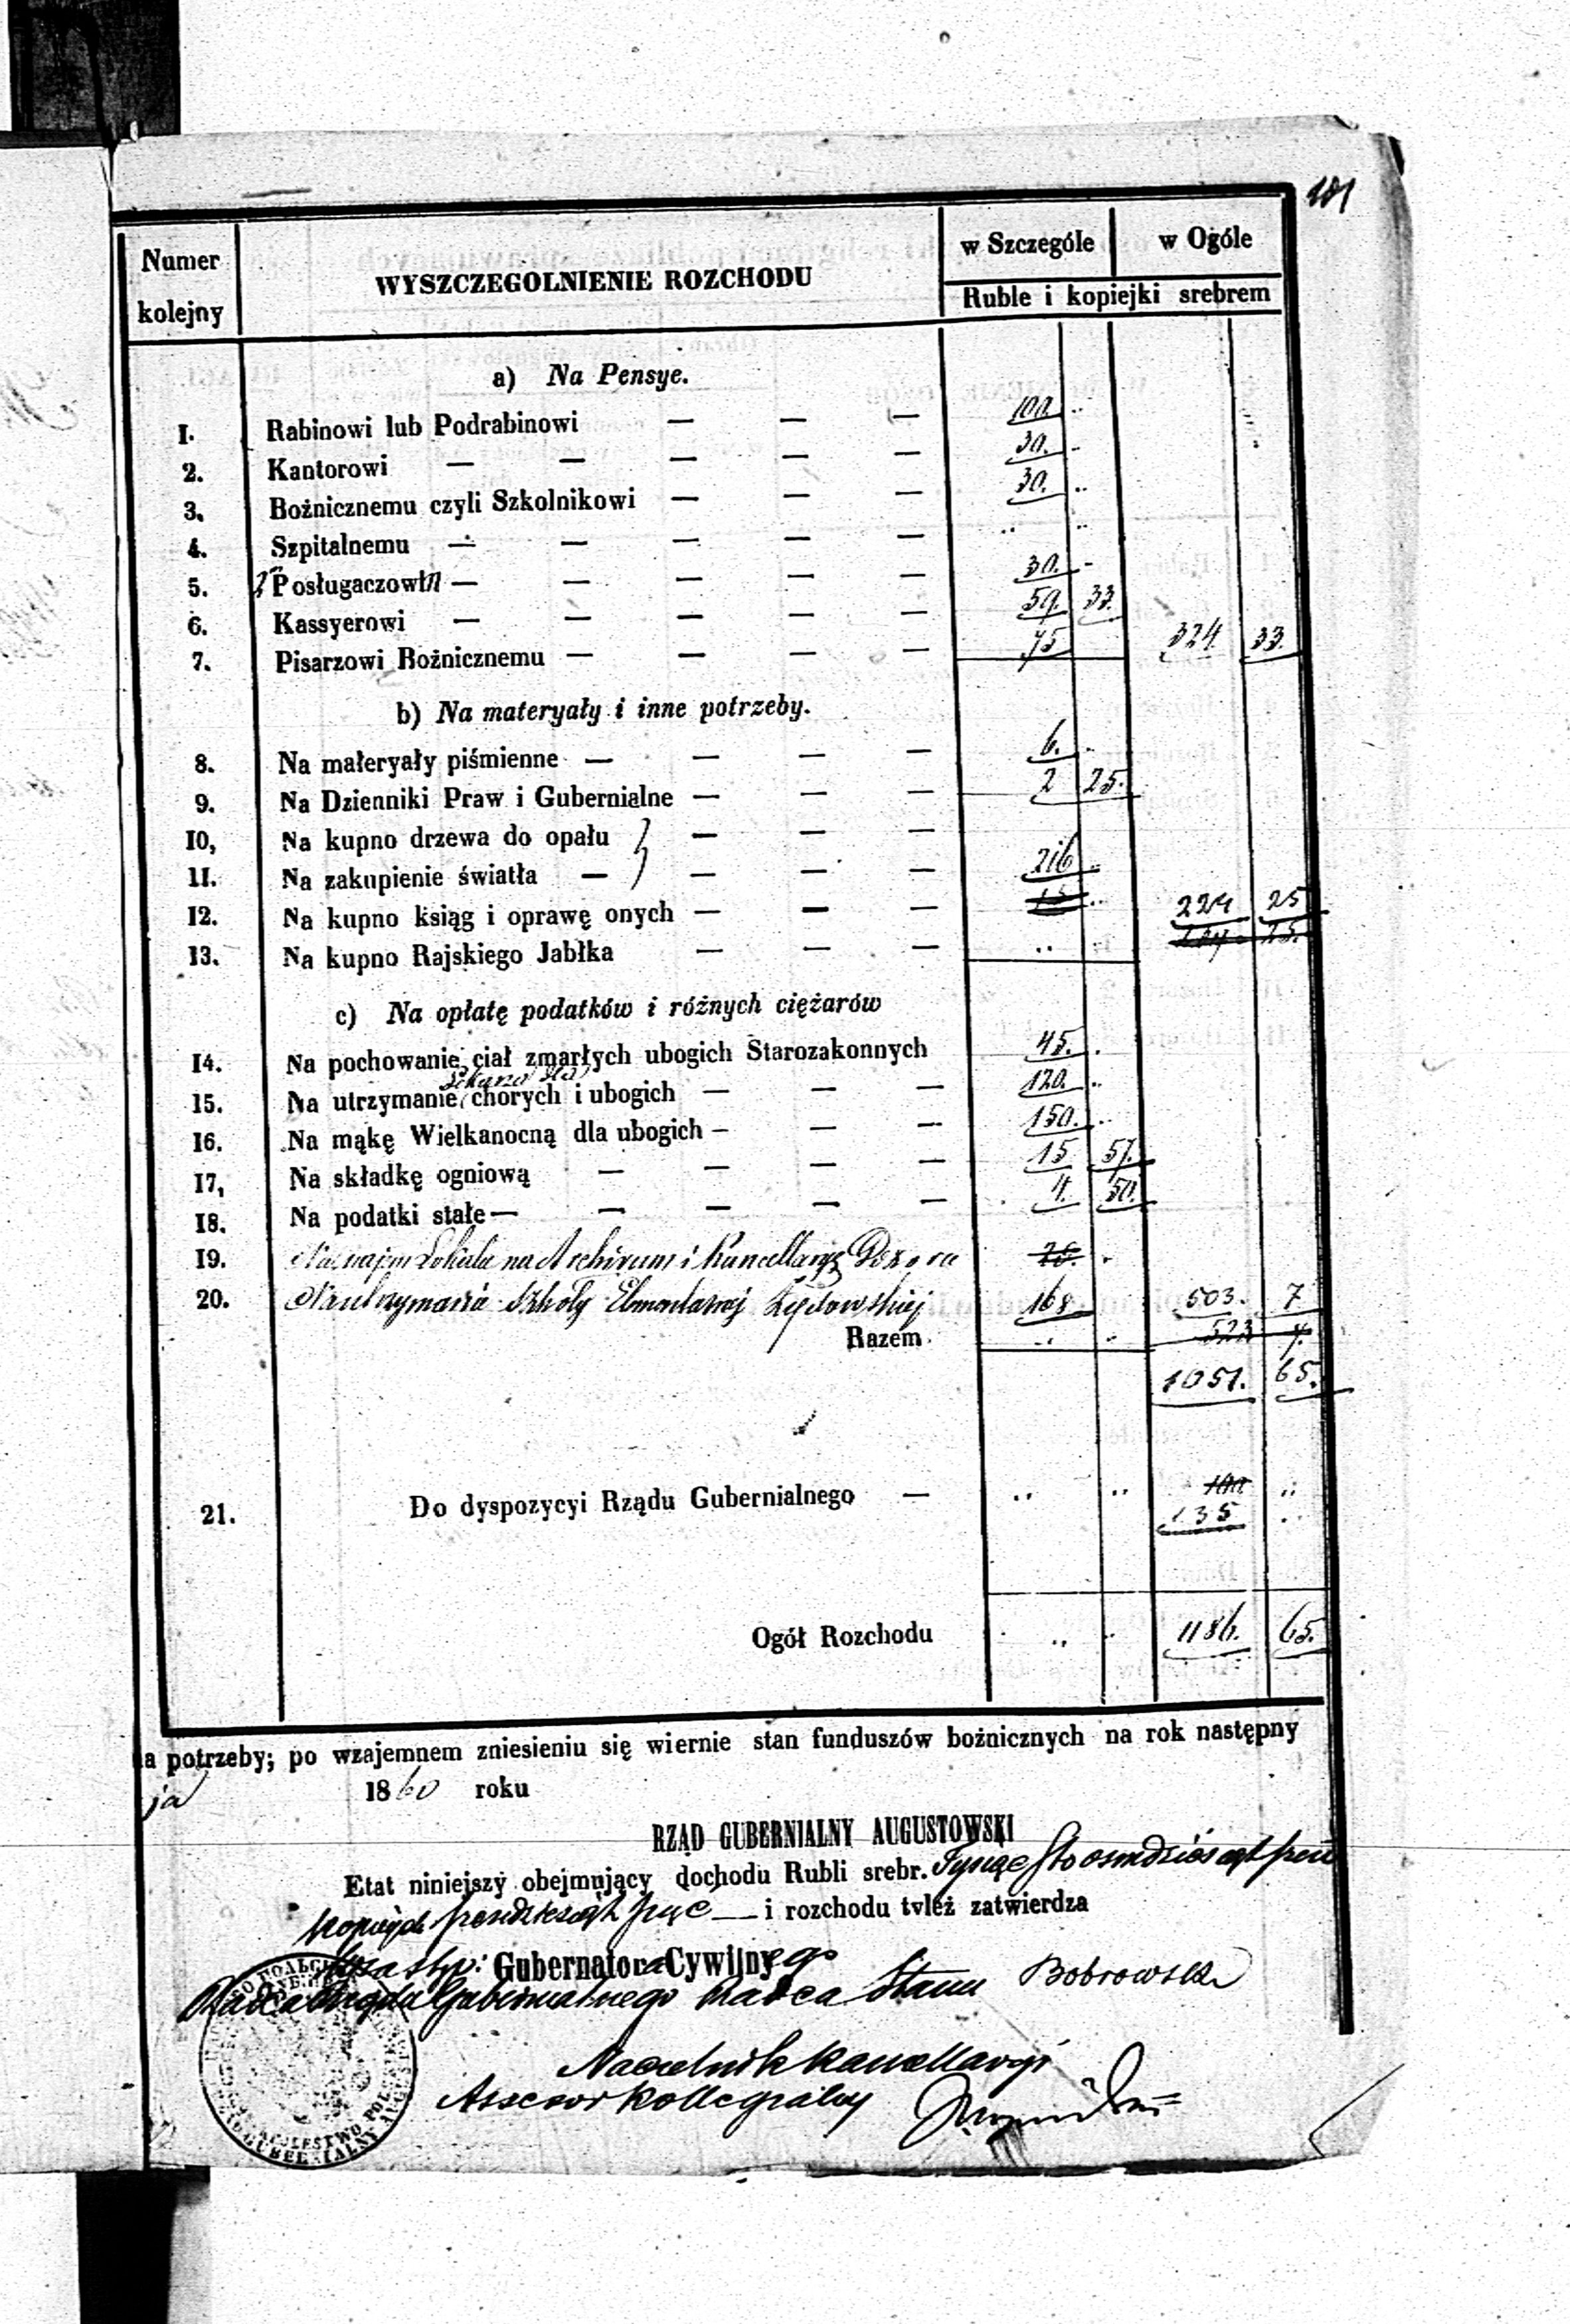 181
Numer kolejny WYSZCZEGOLNIENIE ROZCHODU w Szczególe w Ogóle
Ruble i kopiejki srebrem
a) Na Pensye.
1. Rabinowi lub Podrabinowi — — — 100. ..
2. Kantorowi — — — — — 30. ..
3. Bożnicznemu czyli Szkolnikowi — — — 30. ..
4. Szpitalnemu — — — — — .. ..
5. 2 Posługaczom — — — — — 30. -
6. Kassyerowi — — — — — 59. 33.
7. Pisarzowi Bożnicznemu — — — — 75 324. 33.
b) Na materyały i inne potrzeby.
8. Na materyały piśmienne — — — — 6. ..
9. Na Dzienniki Praw i Gubernialne — — — 2 25.
10, Na kupno drzewa do opału } — — —
11. Na zakupienie światła — } — — — 216 ..
12. Na kupno ksiąg i oprawę onych — — — 15 .. 224 25
13. Na kupno Rajskiego Jabłka — — — .. ..
c) Na opłatę podatków i różnych ciężarów
14. Na pochowanie ciał zmarłych ubogich Starozakonnych 45. .
15. Na utrzymanie chorych i ubogich — — — 120. ..
16. Na mąkę Wielkanocną dla ubogich — — — 150. ..
17, Na składkę ogniową — — — — 15 57.
18. Na podatki stałe — — — — — 4. 50.
19. Na najem Lokalu na Archiwum i Kancellaryę Dozoru 20. .
20. Na utrzymania Szkoły Elementarnej Żydowskiej 168 503. 7
Razem .. .. 523 7.
1051. 65.
21. Do dyspozycyi Rządu Gubernialnego — .. .. 100 ..
135 ..
Ogół Rozchodu .. .. 1186. 65.
na potrzeby; po wzajemnem zniesieniu się wiernie stan funduszów bożnicznych na rok następny
ja 1860 roku
RZĄD GUBERNIALNY AUGUSTOWSKI
Etat niniejszy obejmujący dochodu Rubli srebr. Tysiąc Sto osmdziesiąt sześć
kopiejek sześćdziesiąt pięć — i rozchodu tyleż zatwierdza
Gubernatora Cywilnego
Radca Rządu Gubernialnego Radca Stanu Bobrowski
Naczelnik Kancellaryi
Assesor Kollegialny